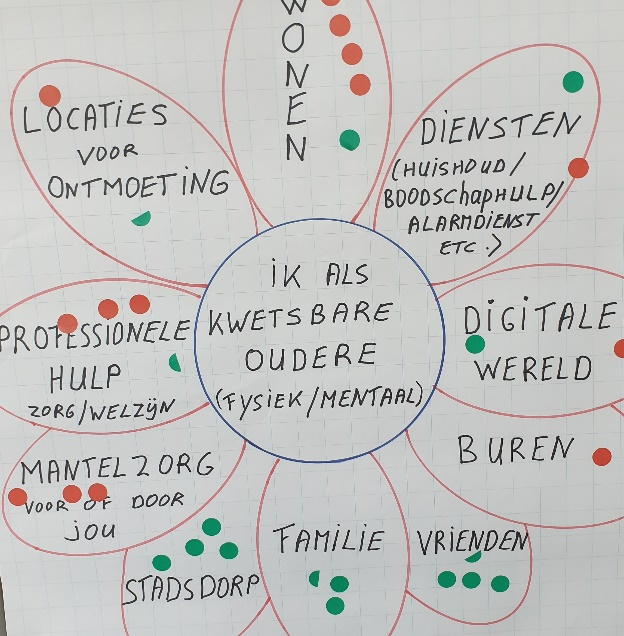 WONEN
LOCATIES
VOOR
ONTMOETING
DIENSTEN
(HUISHOUD/
BOODSCHAPHULP/
ALARMDIENST
ETC.)
IK ALS
KWETSBARE
OUDERE
(FYSIEK/MENTAAL)
PROFESSIONELE
HULP
ZORG/WELZIJN
DIGITALE
WERELD
MANTELZORG
VOOR OF DOOR
jou
BUREN
STADSDORP
FAMILIE
VRIENDEN